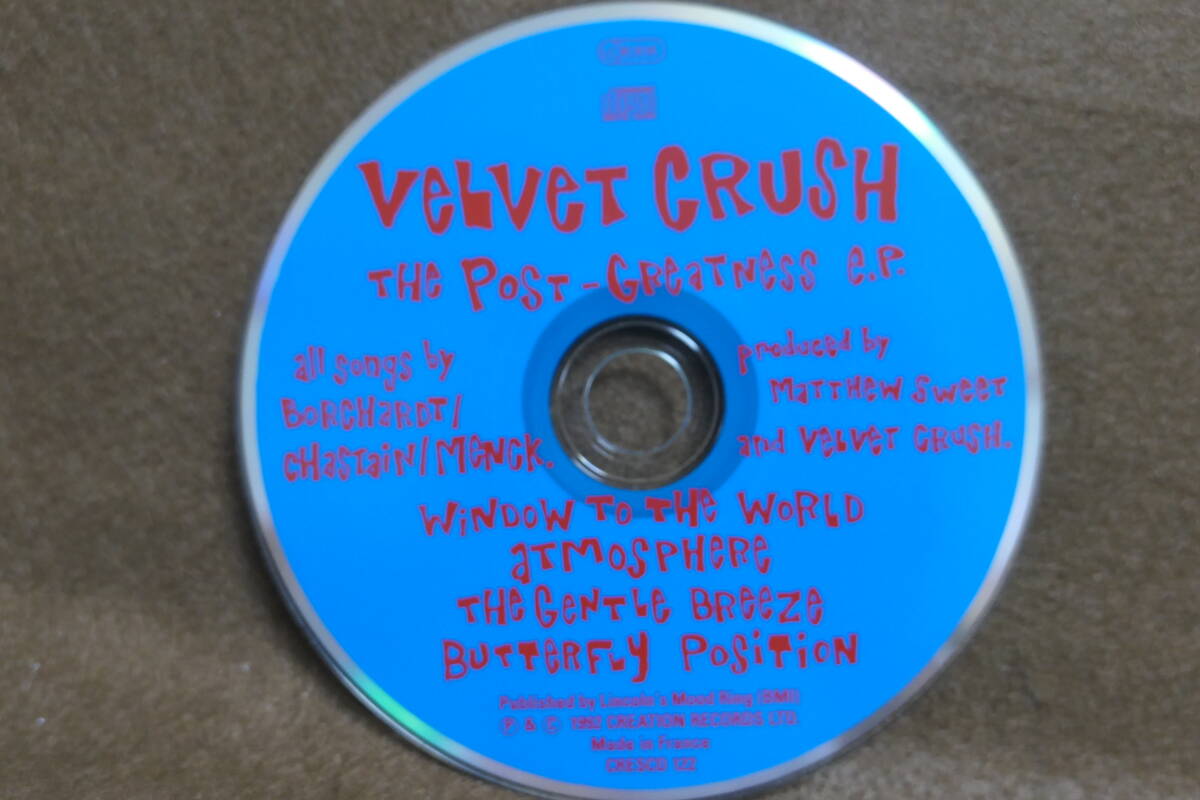 VELVET CRUSH
THE POST-GREATNESS e.P.
all songs by
BORCHARDT/
CHASTAIN/MENCK.
produced by
MATTHEW SWEET
and VELVET CRUSH.
WINDOW TO THE WORLD
ATMOSPHERE
THE GENTLE BREEZE
BUTTERFLY POSITION
Published by Lincoln's Mood Ring (BMI)
Ⓟ & © 1992 CREATION RECORDS LTD.
Made in France
CRESCD 122